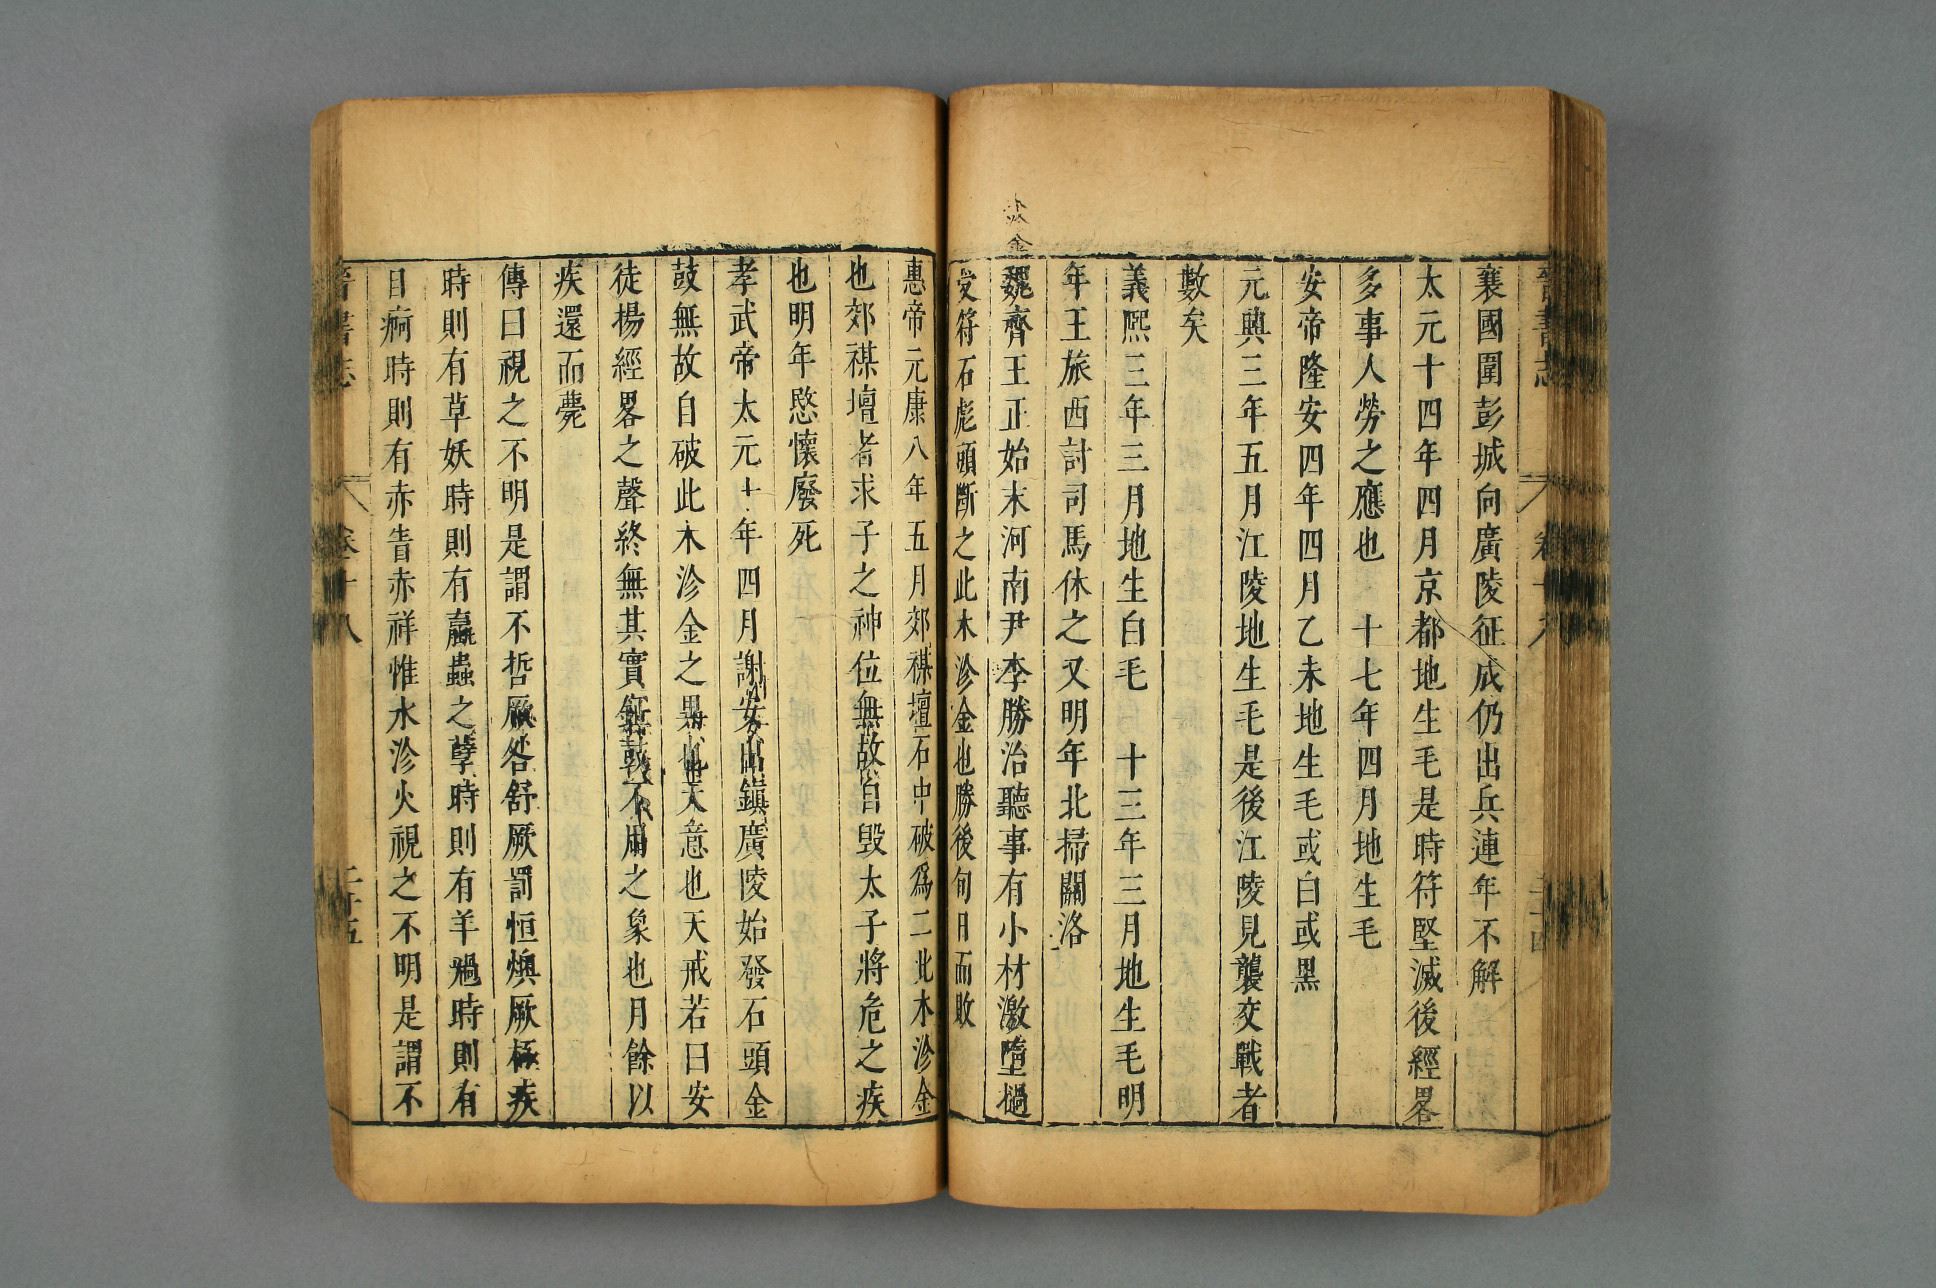 晉書志 卷十八 二十四
襄國圍彭城向廣陵征戍仍出兵連年不解
太元十四年四月京都地生毛是時符堅滅後經畧
多事人勞之應也 十七年四月地生毛
安帝隆安四年四月乙未地生毛或白或黑
元興三年五月江陵地生毛是後江陵見襲交戰者
數矣
義熈三年三月地生白毛 十三年三月地生毛明
年王旅西討司馬休之又明年北掃關洛
木沴金
魏齊王正始末河南尹李勝治聽事有小材激墮檛
受符石彪頭斷之此木沴金也勝後旬日而敗
惠帝元康八年五月郊禖壇石中破爲二此木沴金
也郊禖壇者求子之神位無故自毁太子將危之疾
也明年愍懷廢死
孝武帝太元十年四月謝安出鎭廣陵始發石頭金
鼓無故自破此木沴金之異也天意也天戒若曰安
徒揚經畧之聲終無其實鉦鼓不用之象也月餘以
疾還而薨
傳曰視之不明是謂不哲厥咎舒厥罰恒燠厥極疾
時則有草妖時則有蠃蟲之孽時則有羊禍時則有
目痾時則有赤眚赤祥惟水沴火視之不明是謂不
晉書志 卷十八 二十五